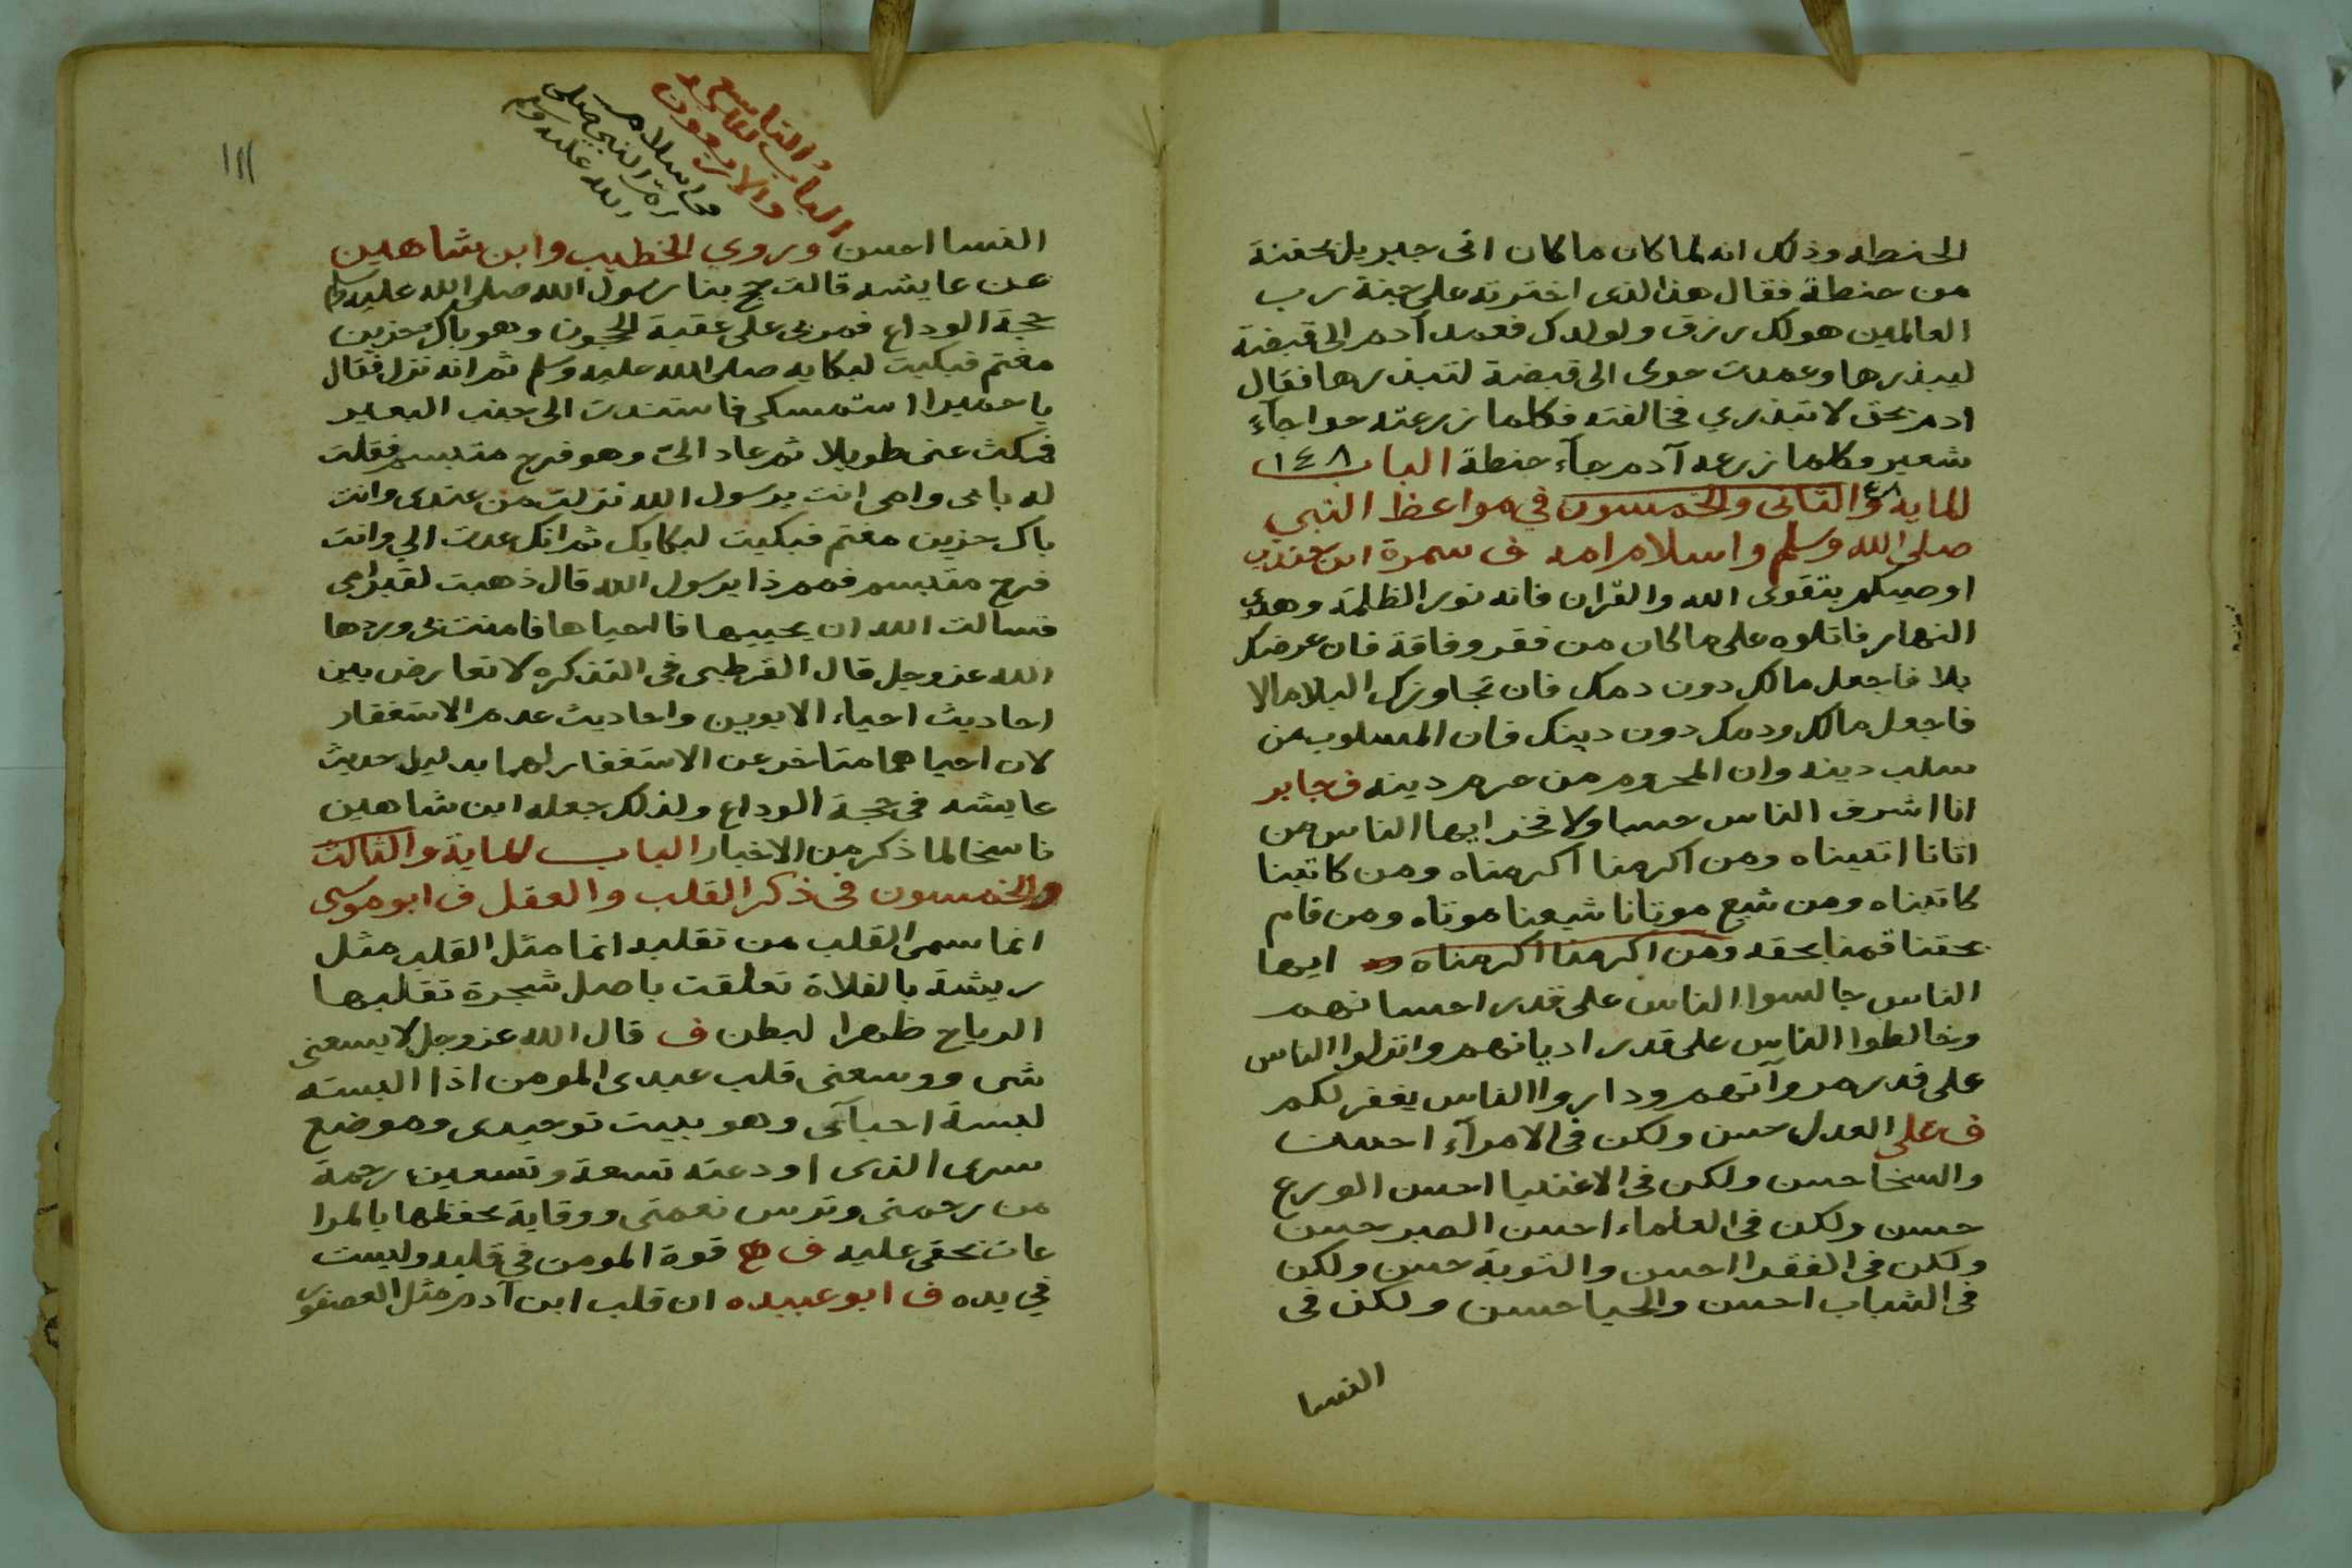 الحنطه وذلك انه لما كان ما كان اتى جبريل بحفنة
من حنطة فقال هذا الذى اخترته على جنة رب
العالمين هو لك رزق ولولدك فعمد آدم الى قبضة
ليبذرها وعمدت حوى الى قبضة لتبذرها فقال
ادم بحق لا تبذري فخالفته فكلما زرعته حوا جآء
شعير وكلما زرعه آدم جآء حنطة الباب ١٤٨
للمايه والثانى والخمسون في مواعظ النبي
صلى الله وسلم واسلام امه ف سمرة ابن جندب
اوصيكم بتقوى الله والقران فانه نور الظلمة وهدى
النهار فاتلوه على ما كان من فقر وفاقة فان عرض لك
بلا فاجعل مالك دون دمك فان تجاوزك البلا مالا
فاجعل مالك ودمك دون دينك فان المسلوب من
سلب دينه وان المحروم من حرم دينه ف جابر
انا اشرف الناس حسبا ولا فخر ايها الناس من
اتانا اتيناه ومن اكرمنا اكرمناه ومن كاتبنا
كاتبناه ومن شيع موتانا شيعنا موتاه ومن قام
بحقنا قمنا بحقه ومن اكرمنا اكرمناه ايها
الناس جالسوا الناس على قدر احسانهم
وخالطوا الناس على قدر اديانهم وانزلوا الناس
على قدر مروآتهم وداروا الناس يغفر لكم
ف على العدل حسن ولكن فى الامرآء احسن
والسخا حسن ولكن فى الاغنيا احسن الورع
حسن ولكن فى العلماء احسن الصبر حسن
ولكن فى الفقرا احسن والتوبة حسن ولكن
فى الشباب احسن والحيا حسن ولكن فى
النسا
١١١
الباب التاسع
والاربعون
فى اسلام
ام النبي صلى
الله عليه وسلم
النسا احسن وروي الخطيب وابن شاهين
عن عايشه قالت حج بنا رسول الله صلى الله عليه وسلم
حجة الوداع فمر بى على عقبة الحجون وهو باك حزين
مغتم فبكيت لبكايه صلى الله عليه وسلم ثم انه نزل فقال
يا حميرا استمسكى فاستندت الى جنب البعير
فمكث عنى طويلا ثم عاد الىّ وهو فرح متبسم فقلت
له بابى وامى انت يرسول الله نزلت من عندى وانت
باك حزين مغتم فبكيت لبكايك ثم انك عدت الي وانت
فرح متبسم فمم ذا يرسول الله قال ذهبت لقبر امى
فسالت الله ان يحييها فاحياها فامنت بى وردها
الله عزوجل قال القرطبى فى التذكره لا تعارض بين
احاديث احياء الابوين واحاديث عدم الاستغفار
لان احياهما متاخر عن الاستغفار لهما بدليل حديث
عايشه فى حجة الوداع ولذلك جعله ابن شاهين
ناسخا لما ذكر من الاخبار الباب للماية والثالث
والخمسون فى ذكر القلب والعقل ف ابو موسى
انما سمى القلب من تقلبه انما مثل القلب مثل
ريشة بالفلاة تعلقت باصل شجرة تقلبها
الرياح ظهرا لبطن ف قال الله عزوجل لا يسعنى
شى ووسعنى قلب عبدى المومن اذا البسته
لبسة احبآئى وهو بيت توحيدى وموضع
سرى الذى اودعته تسعة وتسعين رحمة
من رحمتى وترس نعمتى ووقاية بحفظها بالمرا
عات بحقى عليه ف قوة المومن في قلبه وليست
في يده ف ابو عبيده ان قلب ابن آدم مثل العصفور